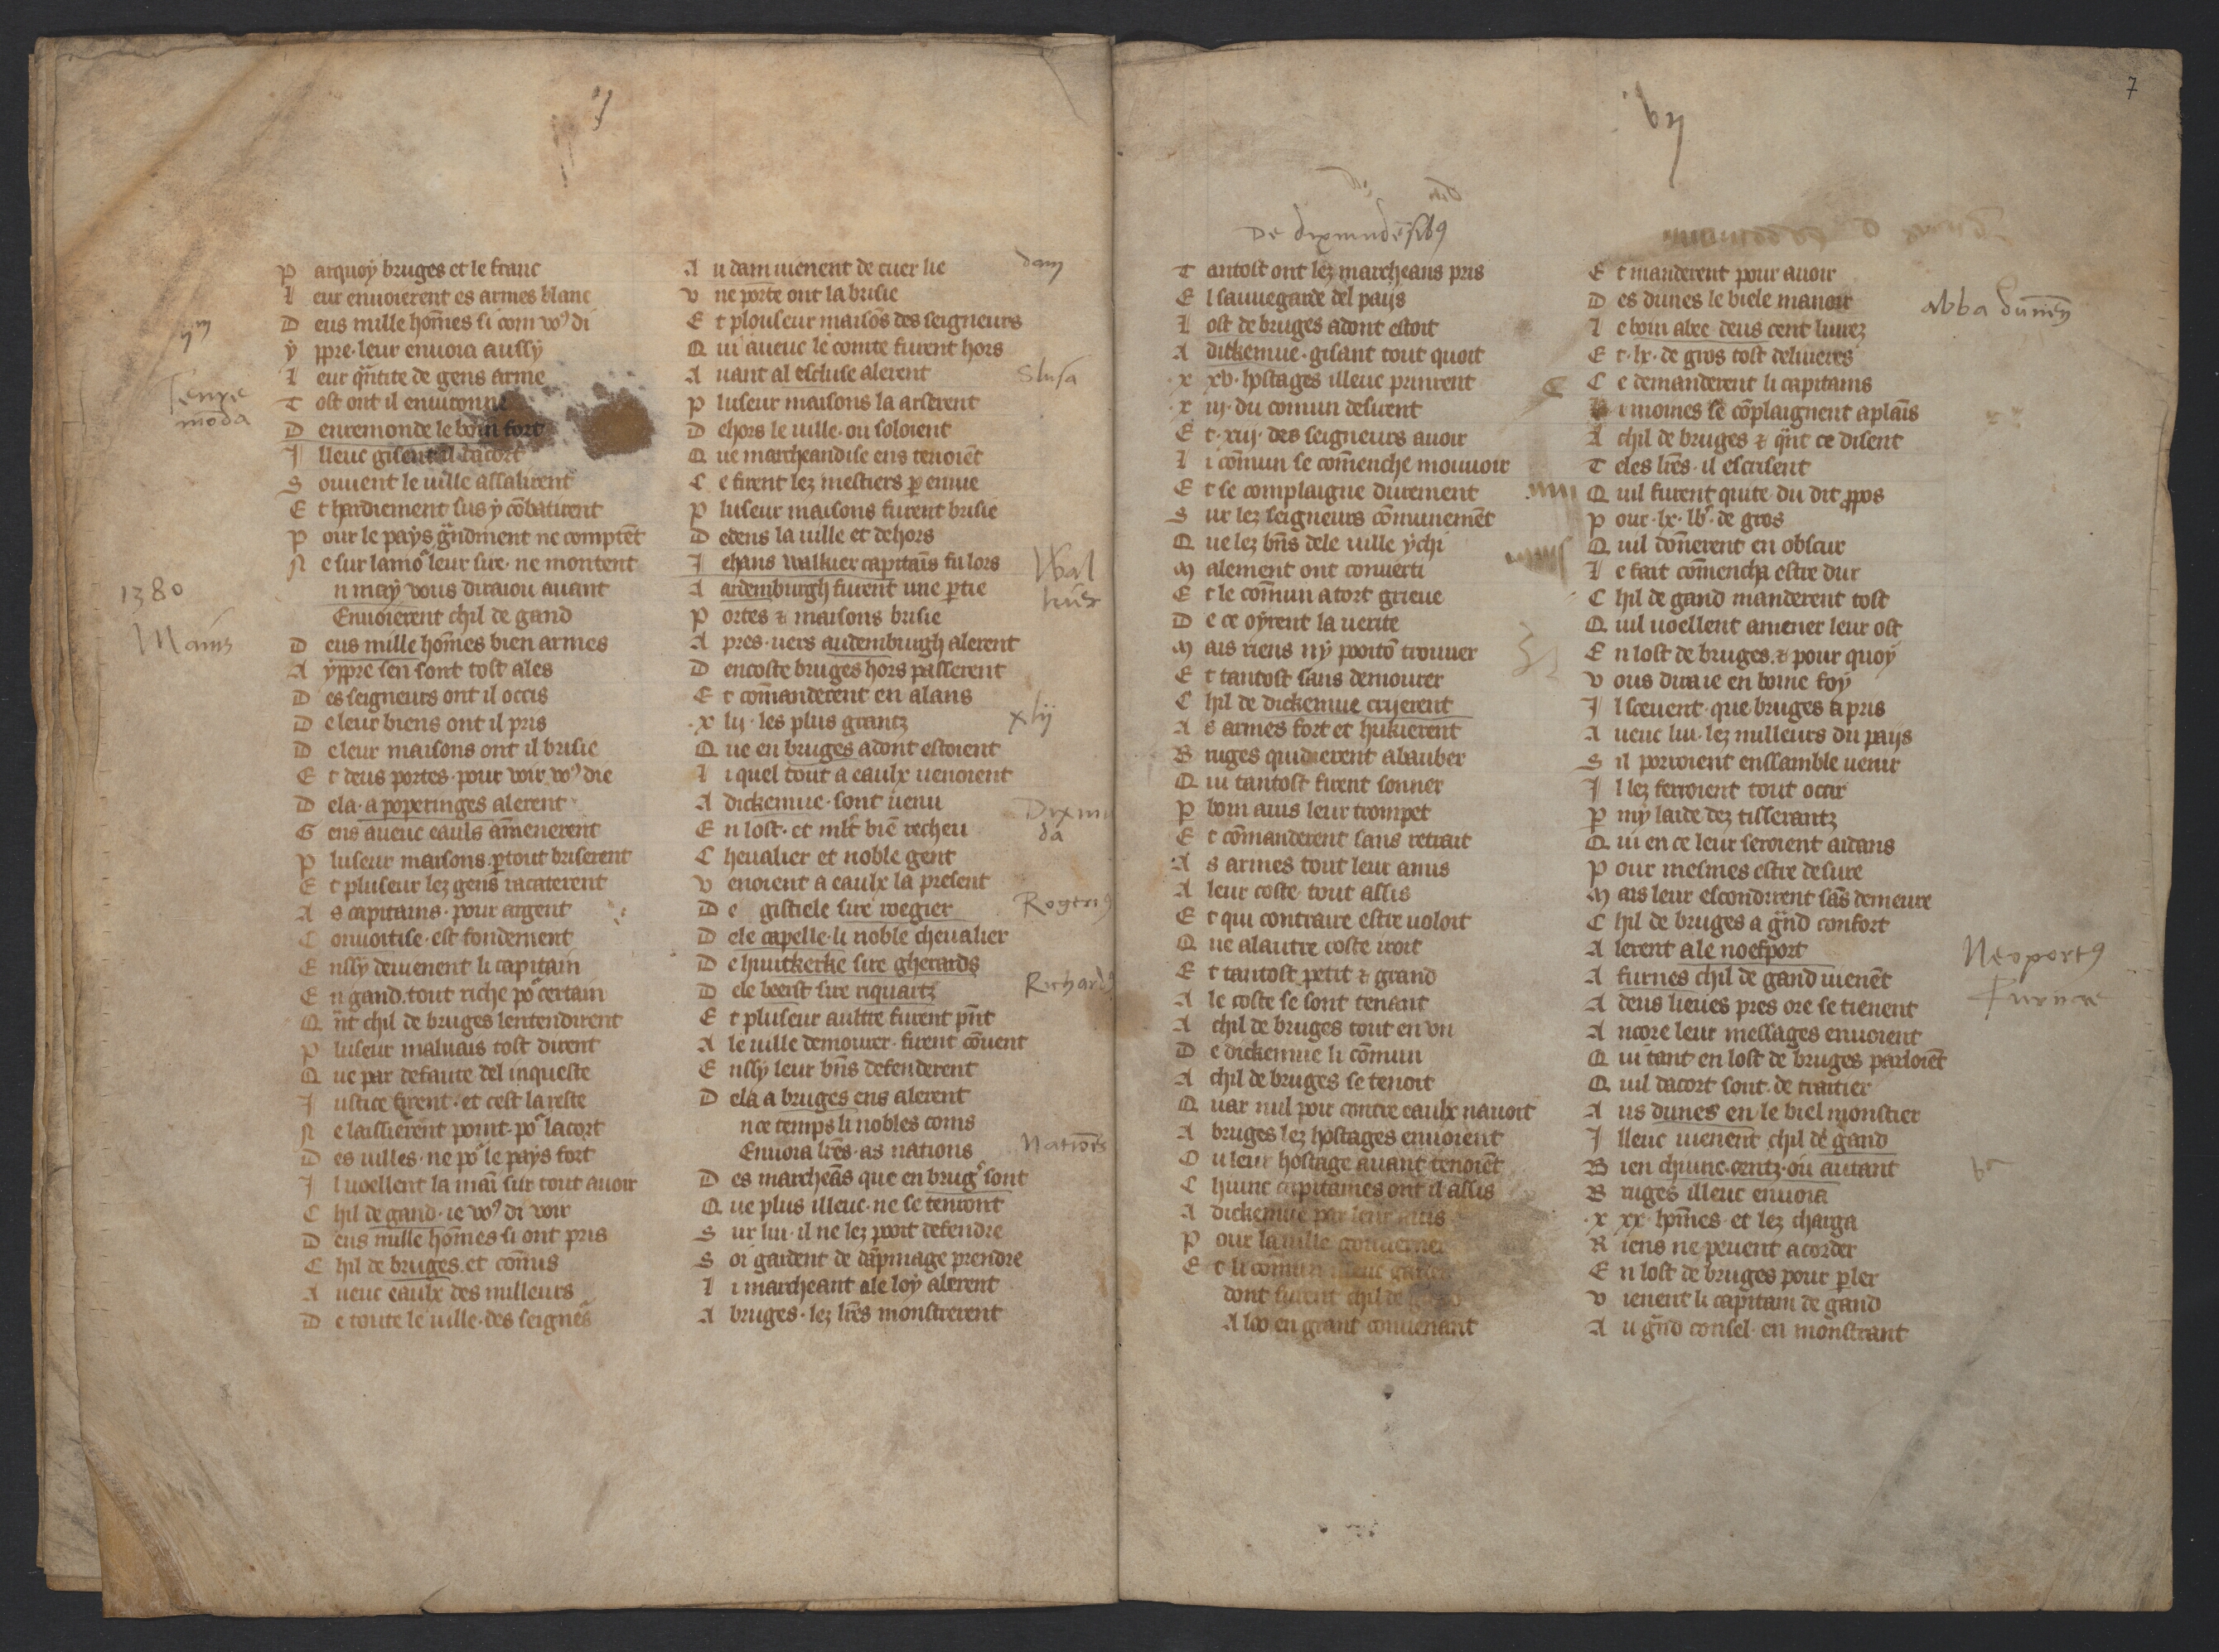 P arquoy bruges et le franc
L eur enuoierent es armes blanc
D eus mille hom̄es si com voꝰ di
Y ppre · leur enuoia aussy
L eur qñtite de gens arme
T ost ont il enuironne
D enremonde le boin fort
J lleuc gisent il dacort
S ouuent le uille assalirent
E t hardiement sus y cōbatirent
P our le pays gñdment ne comptēt
N e sur lamoʳ leur sire · ne montent
n may vous diraiou auant
Enuoierent chil de gand
D eus mille hom̄es bien armes
A yppre sen sont tost ales
D es seigneurs ont il occis
D e leur biens ont il pris
D e leur maisons ont il brisie
E t deus portes · pour voir voꝰ die
D ela · a poperinges alerent
G ens aueuc eauls am̄enerent
P luseur maisons ꝑtout briserent
E t pluseur lez gens racaterent
A s capitains · pour argent
C onuoitise · est fondement
E nssy deuienent li capitain
E n gand · tout riche poʳ certain
Q ñt chil de bruges lentendirent
P luseur maluais tost dirent
Q ue par defaute del inqueste
J ustice firent · et cest la reste
N e laissierent point · poʳ lacort
D es uilles · ne poʳ le pays fort
J l uoellent la mai sur tout auoir
C hil de gand · ie voꝰ di voir
D eus mille hom̄es si ont pris
C hil de bruges et com̄us
A ueuc eaulx des milleurs
D e toute le uille · des seigneʳs
yᵐ
Tenre
mōda
1380
Mains
A u dam uienent de cuer lie
V ne porte ont la brisie
E t plouseur maisōs des seigneurs
Q ui aueuc le comte furent hors
A uant al escluse alerent
P luseur maisons la arserent
D ehors le uille · ou soloient
Q ue marcheandise ens tenoiēt
C e firent lez mestiers ꝑ enuie
P luseur maisons furent brisie
D edens la uille et dehors
J ehans walkier capitains fu lors
A ardemburgh furent une ꝑtie
P ortes & maisons brisie
A pres · uers audemburgh alerent
D encoste bruges hors passerent
E t com̄anderent en alans
· x lij · les plus grantz
Q ue en bruges adont estoient
L i quel tout a eaulx uenoient
A dickemue · sont uenu
E n lost · et mlt̄ biē recheu
C heualier et noble gent
V enoient a eaulx la present
D e gistiele sire rogier
D ele capelle · li noble cheualier
D e huutkerke sire gherards
D ele beerst sire riquartz
E t pluseur aultre furent pñt
A le uille demourer · firent cōuent
E nssy leur bñs defenderent
D ela a bruges ens alerent
n ce temps li nobles coms
Enuoia lr̄es · as nations
D es marcheās que en brugʳ sont
Q ue plus illeuc · ne se tenront
S ur lui · il ne lez pooit defendre
S oi gardent de dāpmage prendre
L i marcheant ale loy alerent
A bruges · lez lr̄es monstrerent
dam
Slusa
Wal
kiier
xlij
Dixmu
da
Rogerꝰ
Richardꝰ
Natiōes
bij
7
De dixmudēsibꝰ
T antost ont lez marcheans pris
E l sauuegarde del pays
L ost de bruges adont estoit
A dickemue · gisant tout quoit
· x xv · hostages illeuc prinrent
· x iij · du comun desirent
E t · xij · des seigneurs auoir
L i com̄un se com̄enche mouuoir
E t se complaigne durement
S ur lez seigneurs com̄unemēt
Q ue lez bñs dele uille ychi
M alement ont conuerti
E t le com̄un a tort grieue
D e ce oyrent la uerite
M ais riens ny pooitō trouuer
E t tantost sans demourer
C hil de dickemue crijerent
A s armes fort et hukierent
B ruges quidierent abauber
Q ui tantost firent sonner
P boin auis leur trompet
E t cōmanderent sans retrait
A s armes tout leur amis
A leur coste tout assis
E t qui contraire estre uoloit
Q ue alautre coste iroit
E t tantost petit & grand
A le coste se sont tenant
A chil de bruges tout en vn
D e dickemue li cōmun
A chil de bruges se tenoit
Q uar nul poir contre eaulx nauoit
A bruges lez hostages enuoient
O u leur hostage auant tenoiēt
C hiunc capitaines ont il assis
A dickemue par leur auis
P our la uille gouuerner
E t li comun
dont furent chil de
A loo en grant conuenant
E t manderent pour auoir
D es dunes le biele manoir
L e boin abee · deus cent liurez
E t · lx · de gros tost deliueres
C e demanderent li capitains
L i moines se cōplaignent a plais
A chil de bruges & qñt ce disent
T eles lr̄es · il escrisent
Q uil furent quite du dit ꝓpos
P our · lx · lbʳ · de gros
Q uil dōnerent en obscur
L e fait com̄encha estre dur
C hil de gand manderent tost
Q uil uoellent amener leur ost
E n lost de bruges · & pour quoy
V ous diraie en boine foy
J l sceuent · que bruges a pris
A ueuc lui · lez milleurs du pays
S il pooroient enssamble uenir
J l lez ferroient tout occir
P my laide dez tisserantz
Q ui en ce leur seroient aidans
P our mesmes estre desure
M ais leur escondirent sās demeure
C hil de bruges a gñd confort
A lerent ale noefport
A furnes chil de gand uienēt
A deus lieues pres ore se tienent
A ncore leur messages enuoient
Q ui tant en lost de bruges parloiēt
Q uil dacort sont · de traitier
A us dunes en le biel monstier
J lleuc uienent chil de gand
B ien chiunc · centz · ou autant
B ruges illeuc enuoia
· x xx · hom̄es · et lez charga
R iens ne peuent acorder
E n lost de bruges pour ꝑler
V ienent li capitain de gand
A u gñd consel · en monstrant
abba dunēn
Neoportꝰ
Furnae